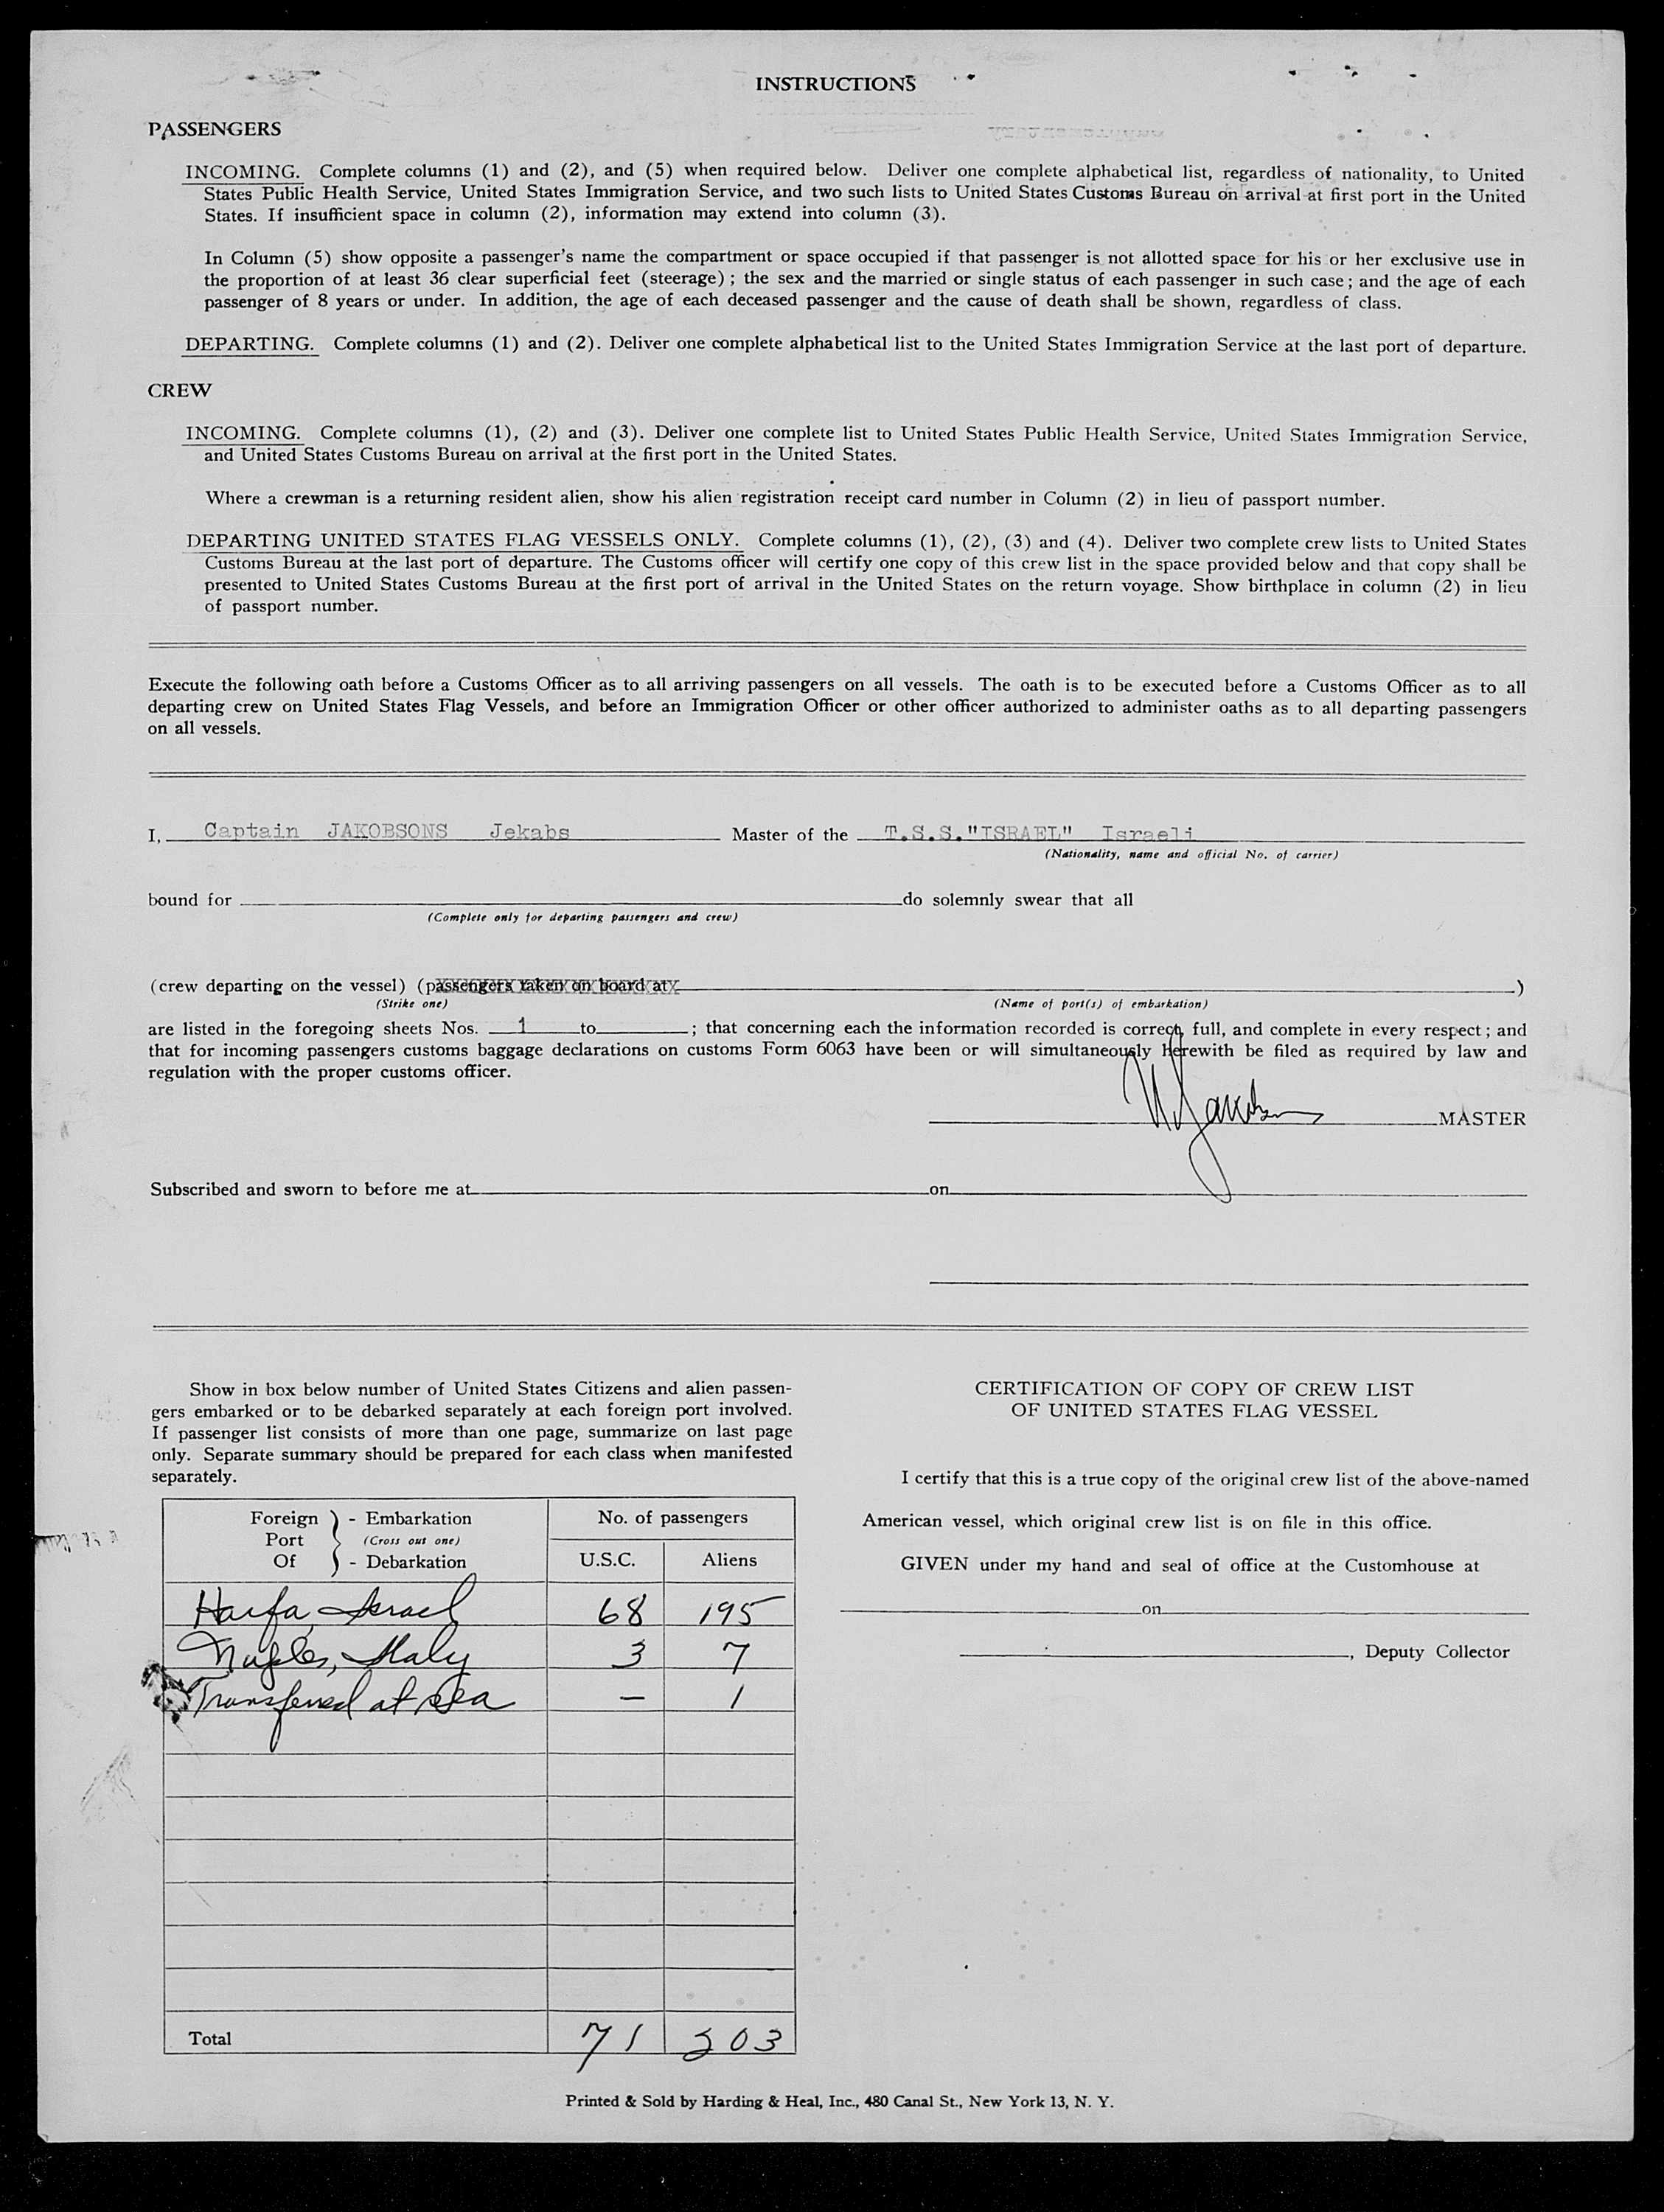 INSTRUCTIONS
PASSENGERS
INCOMING. Complete columns (1) and (2), and (5) when required below. Deliver one complete alphabetical list, regardless of nationality, to United
States Public Health Service, United States Immigration Service, and two such lists to United States Customs Bureau on arrival at first port in the United
States. If insufficient space in column (2), information may extend into column (3).
In Column (5) show opposite a passenger's name the compartment or space occupied if that passenger is not allotted space for his or her exclusive use in
the proportion of at least 36 clear superficial feet (steerage); the sex and the married or single status of each passenger in such case; and the age of each
passenger of 8 years or under. In addition, the age of each deceased passenger and the cause of death shall be shown, regardless of class.
DEPARTING. Complete columns (1) and (2). Deliver one complete alphabetical list to the United States Immigration Service at the last port of departure.
CREW
INCOMING. Complete columns (1), (2) and (3). Deliver one complete list to United States Public Health Service, United States Immigration Service,
and United States Customs Bureau on arrival at the first port in the United States.
Where a crewman is a returning resident alien, show his alien registration receipt card number in Column (2) in lieu of passport number.
DEPARTING UNITED STATES FLAG VESSELS ONLY. Complete columns (1), (2), (3) and (4). Deliver two complete crew lists to United States
Customs Bureau at the last port of departure. The Customs officer will certify one copy of this crew list in the space provided below and that copy shall be
presented to United States Customs Bureau at the first port of arrival in the United States on the return voyage. Show birthplace in column (2) in lieu
of passport number.
Execute the following oath before a Customs Officer as to all arriving passengers on all vessels. The oath is to be executed before a Customs Officer as to all
departing crew on United States Flag Vessels, and before an Immigration Officer or other officer authorized to administer oaths as to all departing passengers
on all vessels.
I, Captain JAKOBSONS Jekabs Master of the T.S.S."ISRAEL" Israeli
(Nationality, name and official No. of carrier)
bound for do solemnly swear that all
(Complete only for departing passengers and crew)
(crew departing on the vessel) (passengers taken on board at )
(Strike one) (Name of port(s) of embarkation)
are listed in the foregoing sheets Nos. 1 to ; that concerning each the information recorded is correct, full, and complete in every respect; and
that for incoming passengers customs baggage declarations on customs Form 6063 have been or will simultaneously herewith be filed as required by law and
regulation with the proper customs officer.
MASTER
Subscribed and sworn to before me at on
Show in box below number of United States Citizens and alien passen-
gers embarked or to be debarked separately at each foreign port involved.
If passenger list consists of more than one page, summarize on last page
only. Separate summary should be prepared for each class when manifested
separately.
Foreign Port Of } - Embarkation (Cross out one) - Debarkation
No. of passengers
U.S.C. Aliens
Haifa, Israel 68 195
Naples, Italy 3 7
Transfered at sea — 1
Total 71 203
CERTIFICATION OF COPY OF CREW LIST
OF UNITED STATES FLAG VESSEL
I certify that this is a true copy of the original crew list of the above-named
American vessel, which original crew list is on file in this office.
GIVEN under my hand and seal of office at the Customhouse at
on
, Deputy Collector
Printed & Sold by Harding & Heal, Inc., 480 Canal St., New York 13, N. Y.